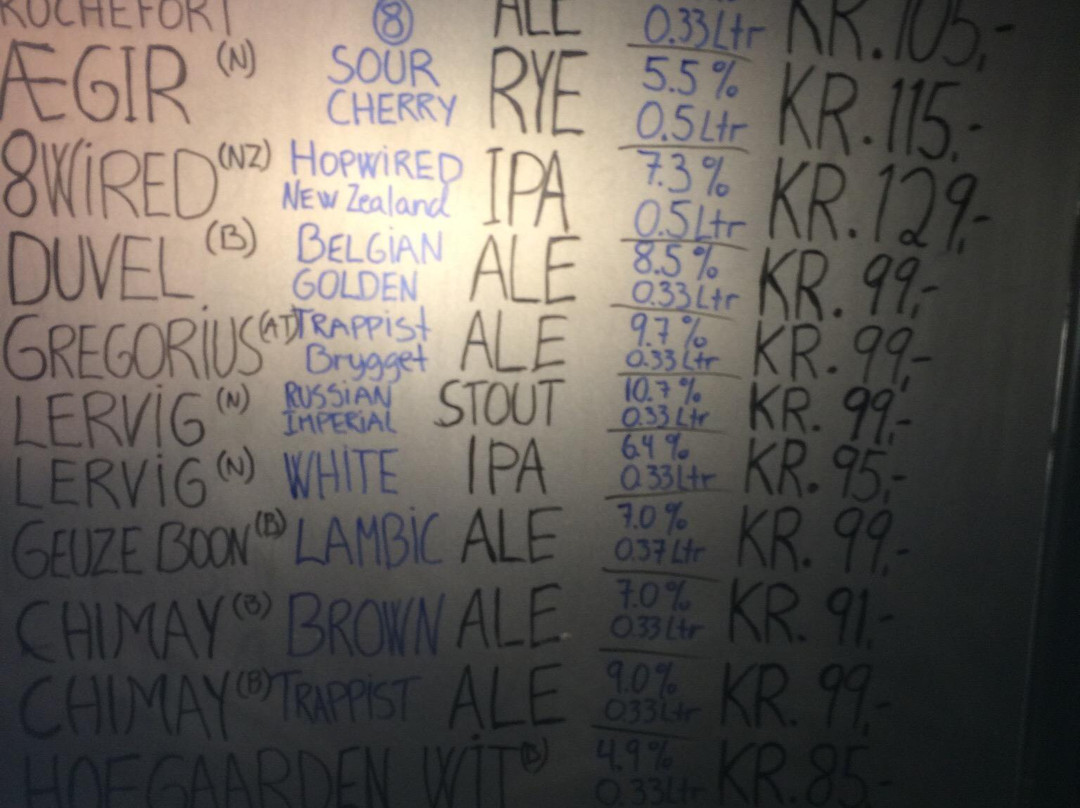 ROCHEFORT 8 ALE 0.33 Ltr KR. 105,-
ÆGIR (N) SOUR CHERRY RYE 5.5% 0.5 Ltr KR. 115,-
8WiRED (NZ) HOPWiRED NEW Zealand IPA 7.3% 0.5 Ltr KR. 129,-
DUVEL (B) BELGiAN GOLDEN ALE 8.5% 0.33 Ltr KR. 99,-
GREGORiUS (AT) TRAPPist Brygget ALE 9.7% 0.33 Ltr KR. 99,-
LERViG (N) RUSSiAN IMPERiAL STOUT 10.7% 0.33 Ltr KR. 99,-
LERViG (N) WHITE IPA 6.4% 0.33 Ltr KR. 95,-
GEUZE BOON (B) LAMBiC ALE 7.0% 0.37 Ltr KR. 99,-
CHIMAY (B) BROWN ALE 7.0% 0.33 Ltr KR. 91,-
CHIMAY (B) TRAPPiST ALE 9.0% 0.33 Ltr KR. 99,-
HOEGAARDEN WiT (B) 4.9% 0.33 Ltr KR. 85,-